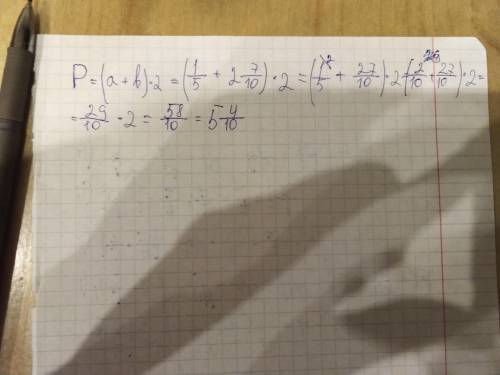 P = (a + b) · 2 = (1/5 + 2 7/10) · 2 = (1/5 + 27/10) · 2 = (2/10 + 27/10) · 2 =
= 29/10 · 2 = 58/10 = 5 4/10